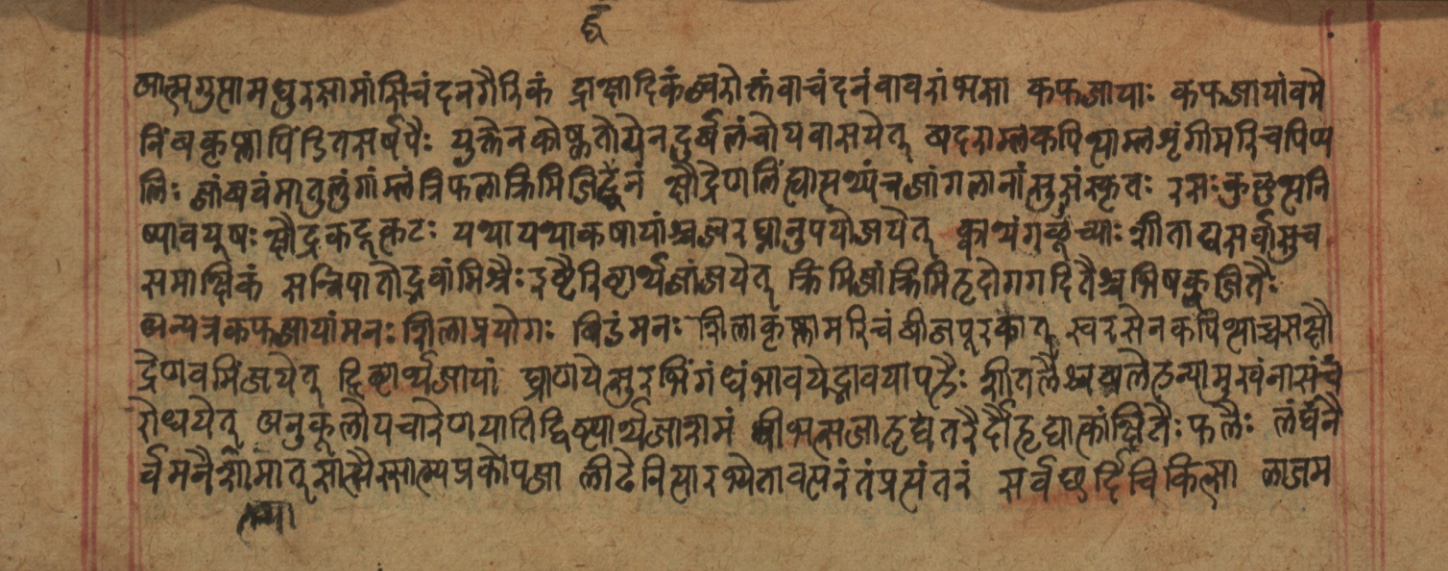 द्द
आत्मगुप्तामधुरसामांसिचंदनगैरिकं द्राक्षादिकंज्वरोक्तंवाचंदनंवावरांभसा कफजायाः कफजायांवमे
निंबकृष्णापिंडितसर्षपैः युक्तेनकोष्णतोयेनदुर्बलंचोपवासयेत् बदराम्लकपित्थाम्लशृंगीमरिचपिप्प
लिः जांबवंमातुलुंगांम्लंत्रिफलाक्रिमिजिद्घनं क्षौद्रेणलिंह्यासथ्यंचजांगलानांसुसंस्कृतः रसःकुछुत्थनि
ष्पावयुषःक्षौद्रकदूत्कटः यथायथाकषायांश्चज्वरघ्नानुपयोजयेत् क्वाथंगळूच्याः शीताद्यसर्वासुच
समाक्षिकं सन्निपातोद्भवांमिश्रैः इष्टैरिव्यर्थजांजयेत् क्रिमिजांक्रिमिहृदोगगदितैश्चभिषक्कूजितैः
अन्यत्रकफजायांमनःशिलाप्रयोगः विडंमनः शिलाकृष्णामरिचंबीजपूरकात् स्वरसेनकपित्थाच्चसक्षौ
द्रेणवमिंजयेत् द्विव्यार्थजायां घ्राणयेत्सुरभिंगंधंभावयेद्भावयापडैः शीतलैश्चजलेहन्यामुखंनासंचं
रोधयेत् अनुकूलोपचारेणयातिद्विष्पार्थजाशमं बीभत्सजाहृद्यतरैर्दौहृद्यात्कांक्षितैःफलैः लंघनै
र्वमनैश्चामात्सात्म्यैरसात्म्यप्रकोपजा लीढेनिसारश्चेतावसरंतंप्रसंतरं सर्वछर्दिचिकित्सा लाजम